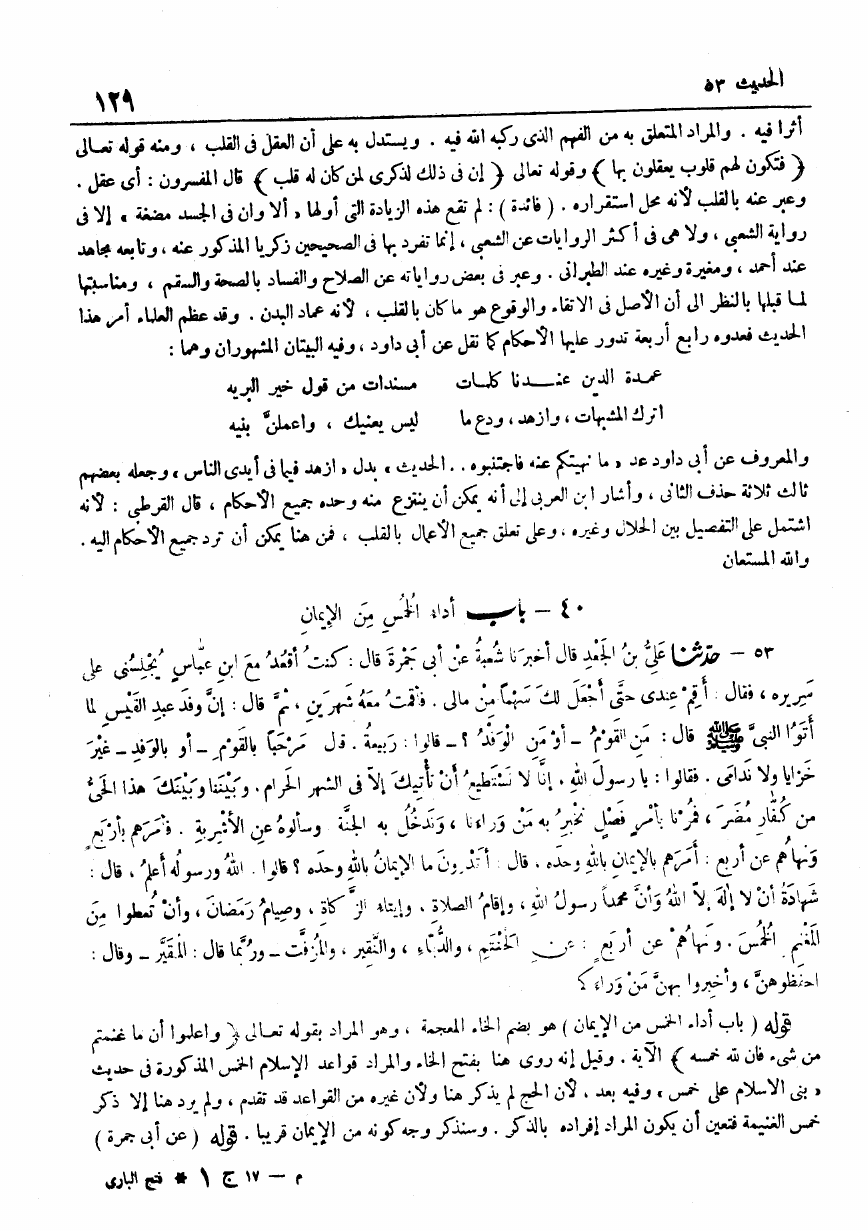 الحديث ٥٣
١٢٩
أثرا فيه . والمراد المتعلق به من الفهم الذى ركبه الله فيه . ويستدل به على أن العقل فى القلب ، ومنه قوله تعالى
﴿ فتكون لهم قلوب يعقلون بها ﴾ وقوله تعالى ﴿ إن فى ذلك لذكرى لمن كان له قلب ﴾ قال المفسرون : أى عقل .
وعبر عنه بالقلب لأنه محل استقراره . ( فائدة ) : لم تقع هذه الزيادة التى أولها « ألا وان فى الجسد مضغة » إلا فى
رواية الشعبى ، ولا هى فى أكثر الروايات عن الشعبى ، إنما تفرد بها فى الصحيحين زكريا المذكور عنه ، وتابعه مجاهد
عند أحمد ، ومغيرة وغيره عند الطبرانى . وعبر فى بعض رواياته عن الصلاح والفساد بالصحة والسقم ، ومناسبتها
لما قبلها بالنظر الى أن الأصل فى الاتقاء والوقوع هو ما كان بالقلب ، لأنه عماد البدن . وقد عظم العلماء أمر هذا
الحديث فعدوه رابع أربعة تدور عليها الأحكام كما نقل عن أبى داود ، وفيه البيتان المشهوران وهما :
عمدة الدين عنـــدنا كلمات مسندات من قول خير البريه
اترك المشبهات ، وازهد ، ودع ما ليس يعنيك ، واعملنَّ بنيه
والمعروف عن أبى داود عد « ما نهيتكم عنه فاجتنبوه . . الحديث » بدل « ازهد فيما فى أيدى الناس » وجعله بعضهم
ثالث ثلاثة حذف الثانى ، وأشار ابن العربى إلى أنه يمكن أن ينتزع منه وحده جميع الأحكام ، قال القرطبى : لأنه
اشتمل على التفصيل بين الحلال وغيره ، وعلى تعلق جميع الأعمال بالقلب ، فمن هنا يمكن أن ترد جميع الأحكام اليه .
والله المستعان
٤٠ – باب أداء الخُمُسِ مِنَ الإيمانِ
٥٣ – حدّثنا عَلِيُّ بنُ الجَعْدِ قال أخبرَنا شُعبةُ عنْ أبى جَمْرةَ قال : كنتُ أقعُدُ معَ ابنِ عبّاسٍ يُجْلِسُنى على
سَرِيرِه ، فقال : أَقِمْ عِندِى حتَّى أَجْعَلَ لكَ سَهْمًا مِنْ مالى . فأقمتُ معَهُ شهرَينِ ، ثمَّ قال : إنَّ وفدَ عبدِ القَيسِ لما
أَتَوُا النبىَّ ﷺ قال : مَنِ القَوْمُ – أوْ مَنِ الوَفْدُ ؟ – قالوا : رَبيعةُ . قال مَرْحَبًا بالقَوْمِ – أو بالوفدِ – غَيرَ
خَزايا ولا نَدامَى . فقالوا : يا رسولَ اللهِ ، إنَّا لا نَسْتَطيعُ أنْ نأْتِيكَ إلاّ فى الشهرِ الحَرامِ . وبَيْنَنا وبَيْنَكَ هذا الحَىُّ
من كُفَّارِ مُضَرَ ، فمُرْنا بأمْرٍ فَصْلٍ نُخْبِرْ به مَنْ وَراءَنا ، ونَدخُلْ به الجنَّةَ وسألوهُ عنِ الأشْرِبةِ . فأمَرهم بأرْبَعٍ
ونَهاهُم عن أربعٍ : أمَرَهم بالإيمانِ باللهِ وحدَه . قال : أتَدْرونَ ما الإيمانُ باللهِ وحدَه ؟ قالوا . اللهُ ورسولُه أعلمُ ، قال :
شَهادَةُ أنْ لا إلَهَ إلاّ اللهُ وَأنَّ محمداً رسولُ اللهِ ، وإقامُ الصلاةِ ، وإيتاءُ الزَّكاةِ ، وصِيامُ رَمَضانَ ، وأنْ تُعطوا مِنَ
المَغْنَمِ الخُمُسَ . ونَهاهُمْ عن أربَعٍ : عنِ الحَنْتَمِ ، والدُّبّاءِ ، والنَّقِيرِ ، والمُزَفَّتِ – ورُبَّما قال : المُقَيَّرِ – وقال :
احفَظوهُنَّ ، وأَخبِروا بهِنَّ مَنْ وَراءَكم
قوله ( باب أداء الخمس من الإيمان ) هو بضم الخاء المعجمة ، وهو المراد بقوله تعالى ﴿ واعلموا أن ما غنمتم
من شىء فان لله خمسه ﴾ الآية . وقيل إنه روى هنا بفتح الخاء والمراد قواعد الإسلام الخمس المذكورة فى حديث
« بنى الاسلام على خمس » وفيه بعد ، لأن الحج لم يذكر هنا ولأن غيره من القواعد قد تقدم ، ولم يرد هنا إلا ذكر
خمس الغنيمة فتعين أن يكون المراد إفراده بالذكر . وسنذكر وجه كونه من الإيمان قريبا . قوله ( عن أبى جمرة )
م – ١٧ ج ١ * فتح البارى